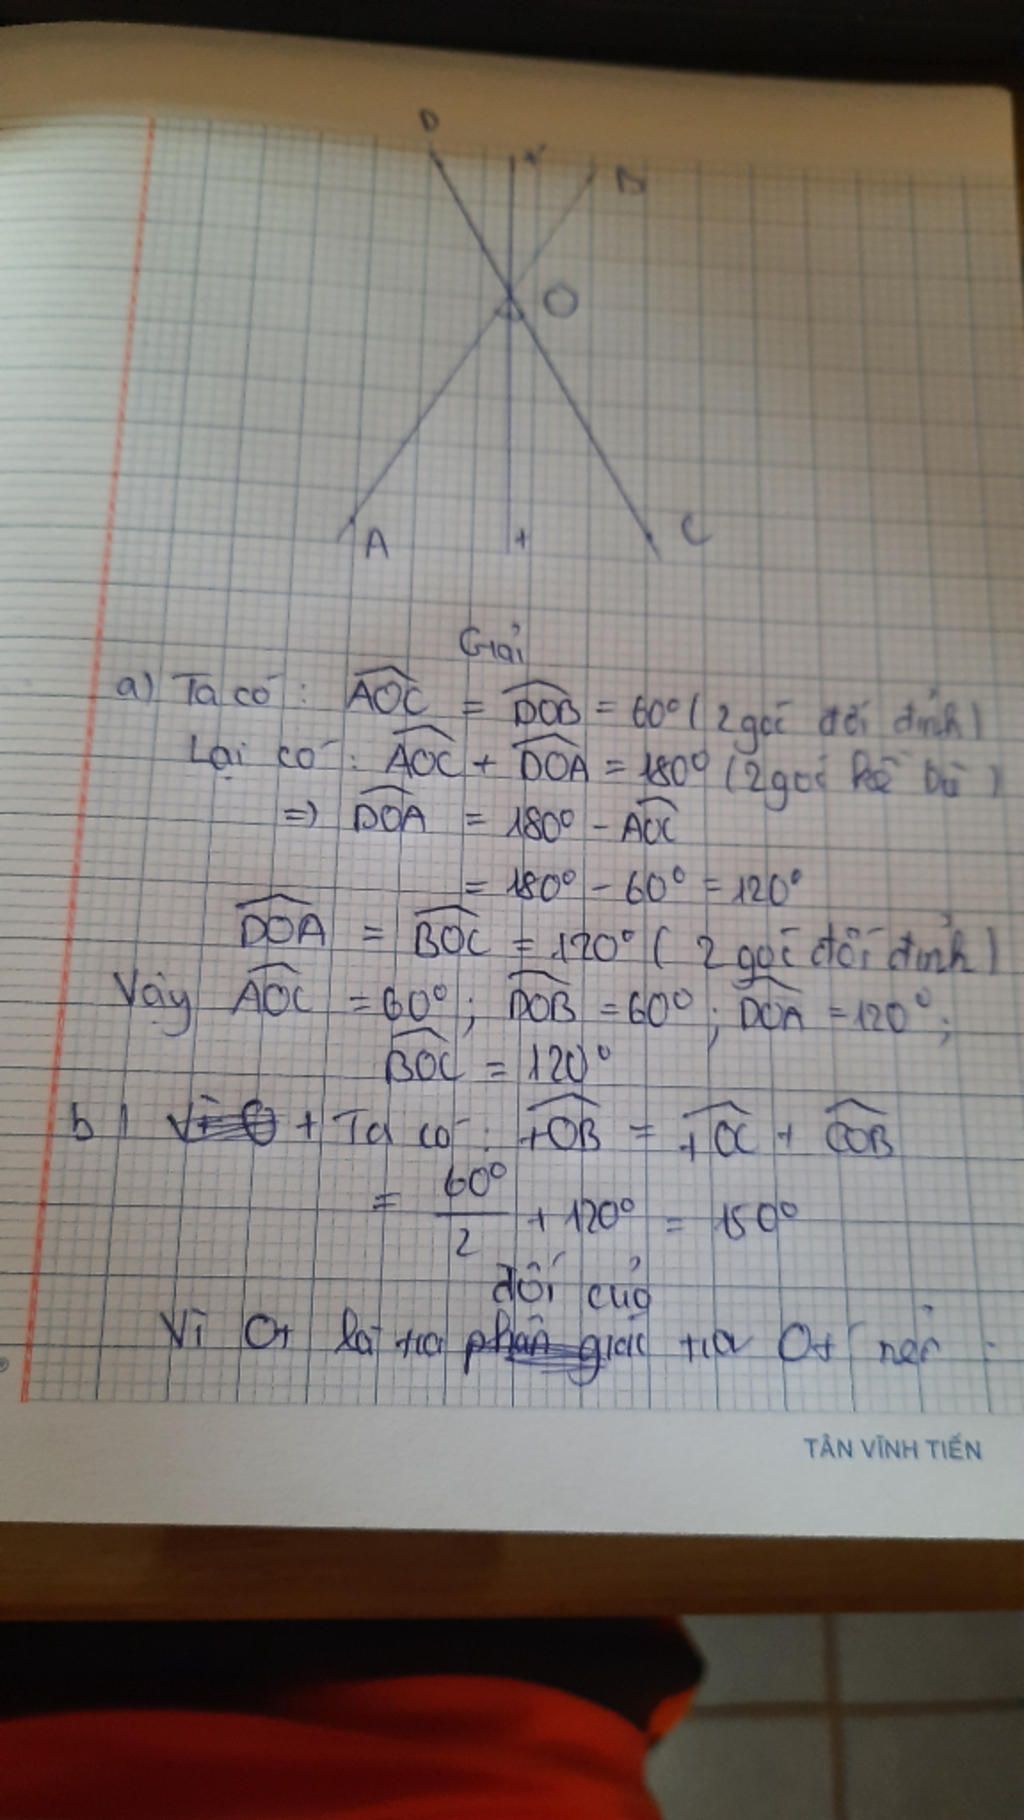 D
t'
B
O
A
t
C
Giải
a) Ta có: AOC = DOB = 60° (2 góc đối đỉnh)
Lại có: AOC + DOA = 180° (2 góc kề bù)
=> DOA = 180° - AOC
= 180° - 60° = 120°
DOA = BOC = 120° (2 góc đối đỉnh)
Vậy AOC = 60°; DOB = 60°; DOA = 120°;
BOC = 120°
b) + Ta có: tOB = tOC + COB
= 60°/2 + 120° = 150°
đối của
Vì Ot là tia tia Ot nên
TÂN VĨNH TIẾN